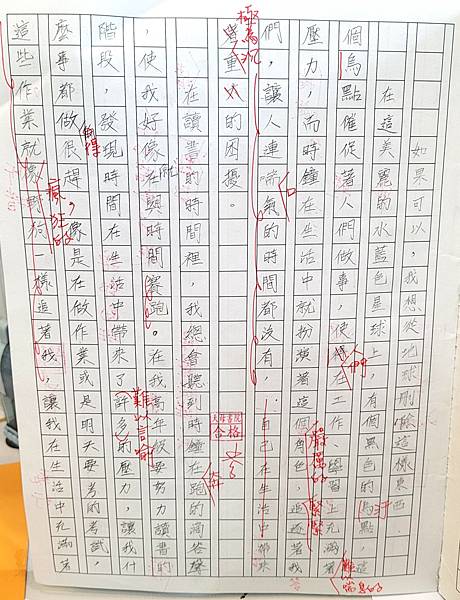 如果可以,我想從地球刪除這樣東西
在這美麗的水藍色星球上,有個黑色的烏點,這
個烏點催促著人們做事,使得在工作、學習上充滿著
壓力,而時鐘在生活中就扮演著這個角色,追逐著我
們,讓人連喘氣的時間都沒有,自己在生活中
重的困擾。
在讀書的時間裡,我總會聽到時鐘在跑的滴答聲
,使我好像在與時間賽跑。在我高年級要努力讀書的
階段,發現時間在生活中帶來了許多的壓力,讓我什
麼事都做很趕,像是在做作業或是明天要考的考試,
這些作業就像野狗一樣追著我,讓我在生活中充滿著
汙
嚴厲的
緊緊
極為沉
合格
難以言喻
得
瘋狂的